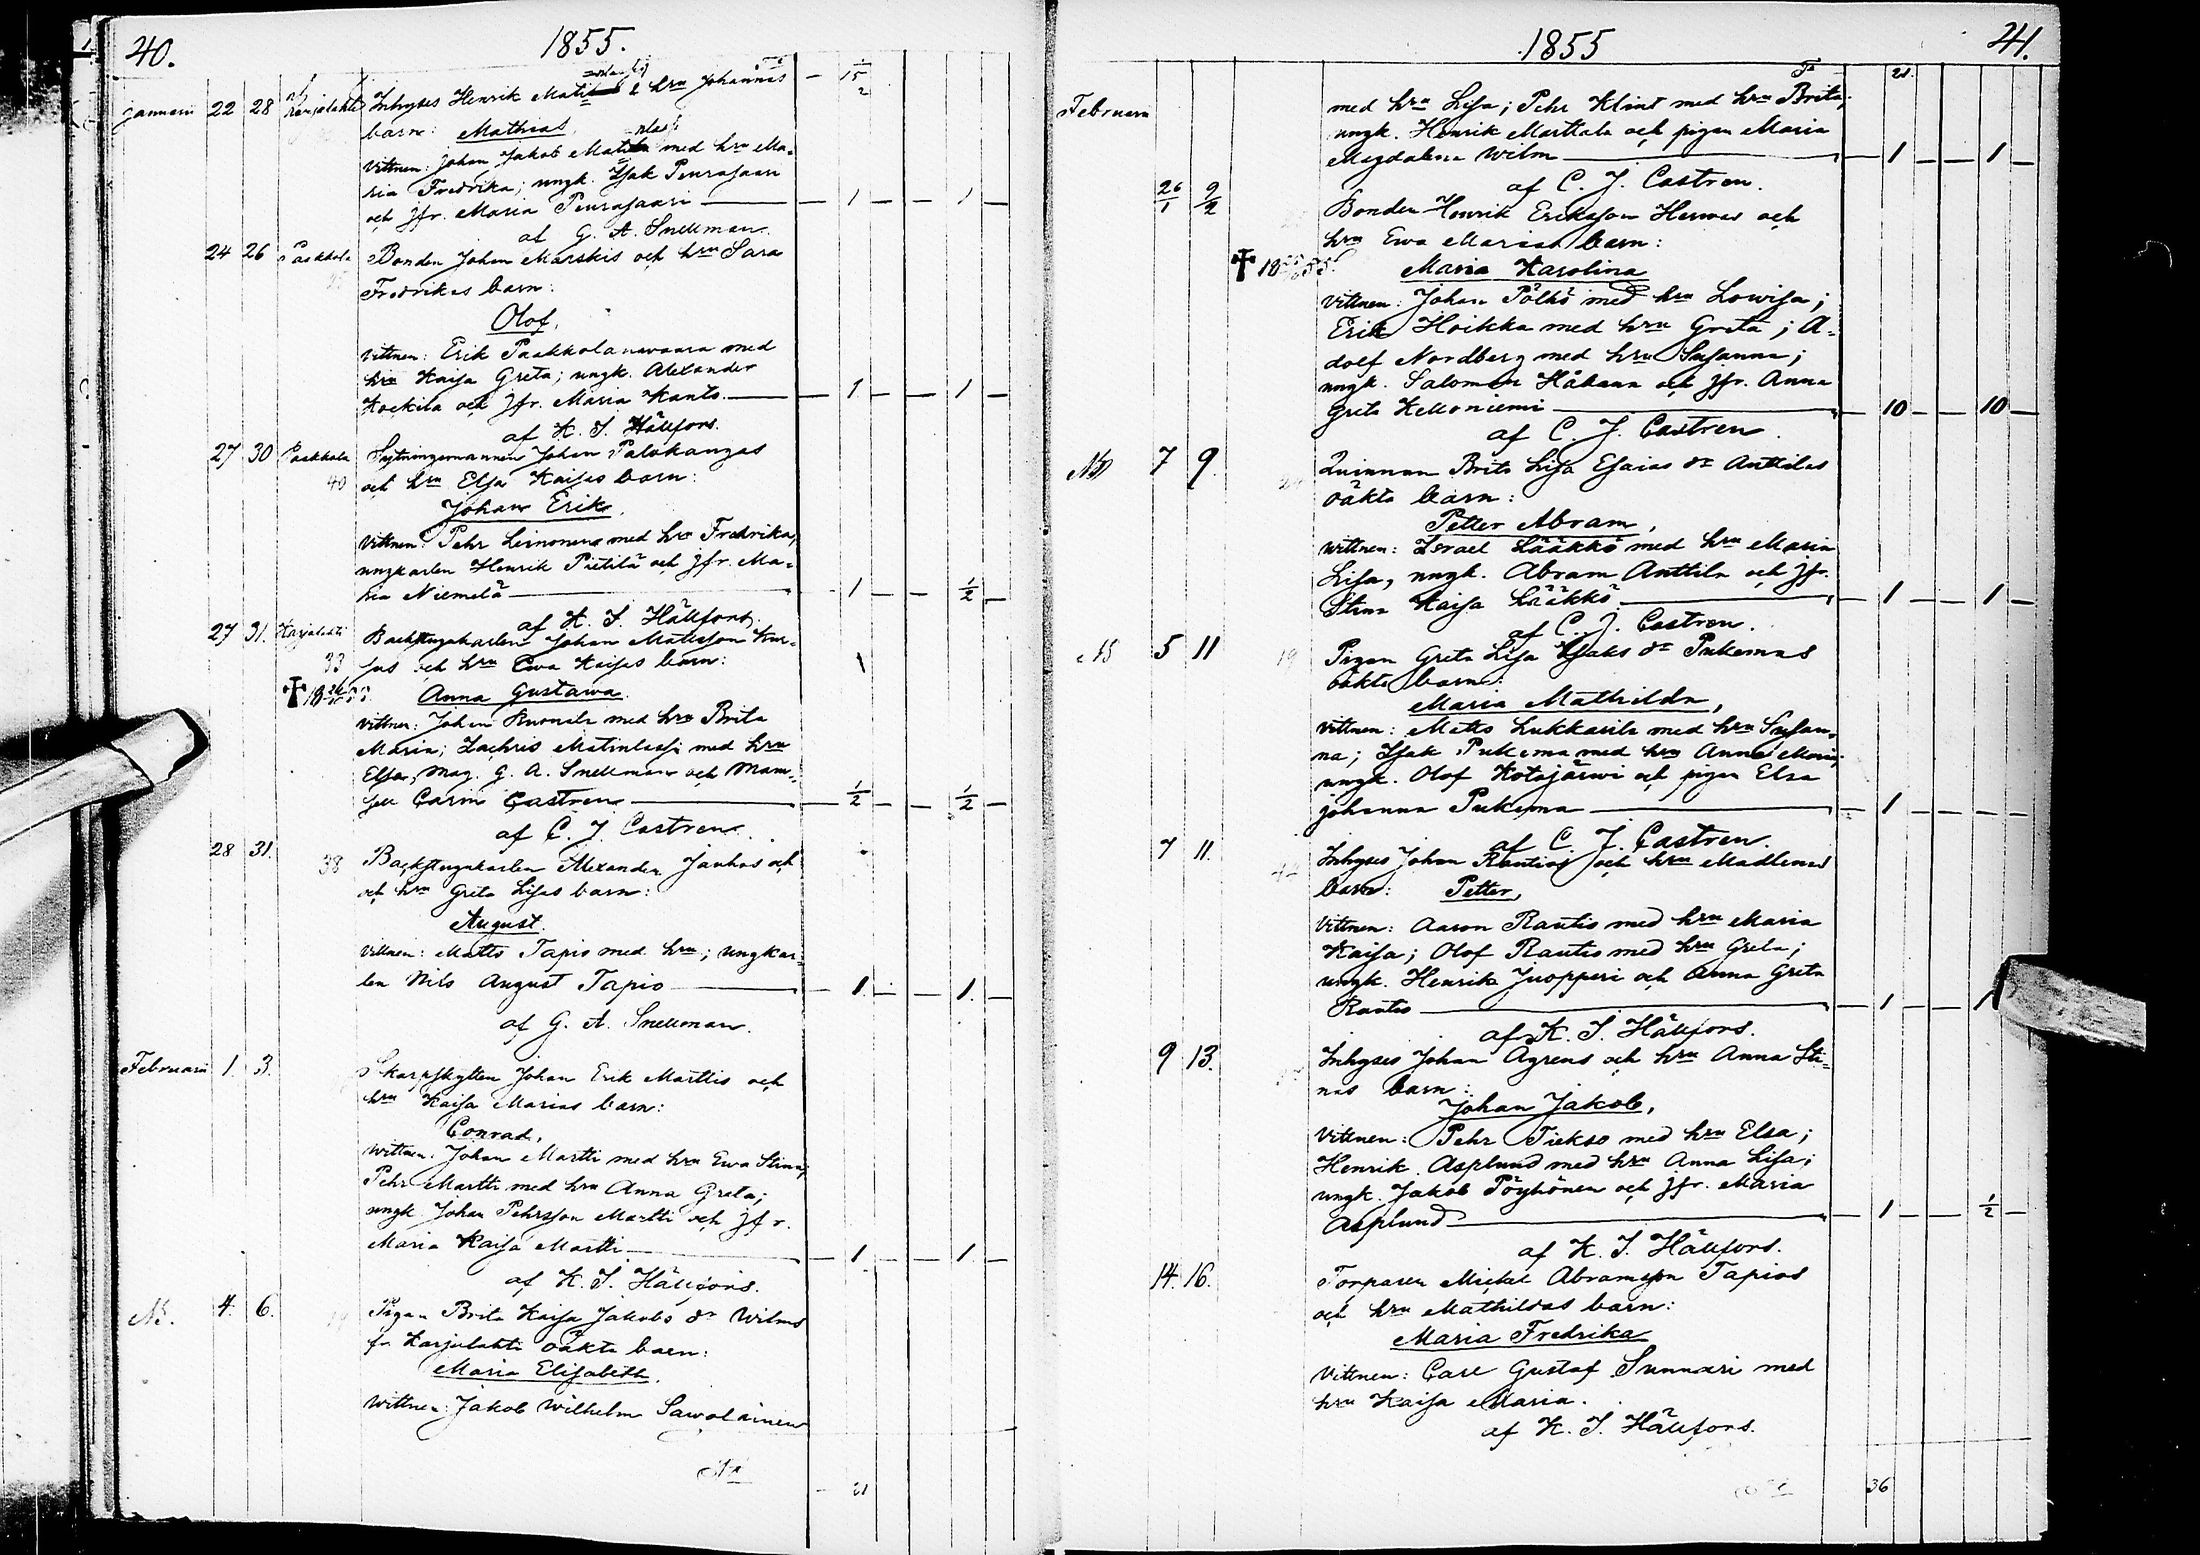 40.
1855.
Januarii 22 28 Karjalahti Inhyses Henrik & hru Johannas
barn: Mathias.
Vittnen: Johan Jakob med hru Ma-
ria Fredrika; ungk. Isak Peurasaari
och Jfr. Maria Peurasaari — 1 — 1 —
af G. A. Snellman.
24 26 Paakkola Bonden Johan Marskis och hru Sara
Fredrikas barn:
Olof,
Vittnen: Erik Paakkolanwaara med
hru Kaisa Greta; ungk. Alexander
Kockila och Jfr. Maria Kanto. — 1 — 1 —
af K. I. Hällfors.
27 30 Paakkola Sytningsmannen Johan Palokangas
40 och hru Elsa Kaisas barn:
Johan Erik,
Vittnen: Pehr Leinonen med hru Fredrika,
ungkarlen Henrik Pietilä och Jfr. Ma-
ria Niemelä — 1 — 1/2 —
af K. I. Hällfors.
27 31. Karjalahti Backstugukarlen Johan Mattsson
33 och hru Ewa Kaisas barn:
Anna Gustawa.
Vittnen: Johan Ruonala med hru Brita
Maria; Zachris Matinlassi med hru
Elsa, Mag. G. A. Snellman och Mam-
sell Carin Castren — 1/2 — 1/2 —
af C. J. Castren.
28 31.
38 Backstugukarlen Alexander Jauhos och
och hru Greta Lisas barn:
August.
Vittnen: Matts Tapio med hru; ungkar-
len Nils August Tapio — 1 — 1. —
af G. A. Snellman.
Februarii 1. 3. Skarpskytten Johan Erik Marttis och
hru Kaisa Marias barn:
Conrad,
Wittnen: Johan Martti med hru Ewa Stina;
Pehr Martti med hru Anna Greta;
ungk. Johan Pehrsson Martti och Jfr.
Maria Kaisa Martti — 1 — 1. —
af K. I. Hällfors.
N. 4. 6. Pigan Brita Kaisa Jakobs dr Wilms
fr. Karjalahti oäkta barn:
Maria Elisabeth.
Wittnen: Jakob Wilhelm Sawolainen
21
1855
41.
21
Februarii med hru Lisa; Pehr Klint med hru Brita;
ungk. Henrik Marttala och pigan Maria
Magdalena Wilm — 1 — 1 —
af C. J. Castren.
26/1 9/2 Bonden Henrik Eriksson Hermas och
hru Ewa Marias barn:
Maria Karolina
Vittnen: Johan Pölhö med hru Lowisa;
Erik Hoikka med hru Greta; A-
dolf Nordberg med hru Susanna;
ungk. Salomon Håkana och Jfr. Anna
Greta Kelloniemi — 10 — 10 —
af C. J. Castren.
7 9. Quinnan Brita Lisa Esaias dr Anttilas
oäkta barn:
Petter Abram,
Wittnen: Israel Lääkkö med hru Maria
Lisa, ungk. Abram Anttila och Jfr.
Stina Kaisa Lääkkö — 1 — 1 —
af C. J. Castren.
N 5 11 19 Pigan Greta Lisa Isaks dr Pukemas
oäkta barn:
Maria Mathilda,
Vittnen: Matts Lukkarila med hru Susan-
na; Isak Pukema med hru Anna Maria;
ungk. Olof Kotajärwi och pigan Elsa
Johanna Pukema — 1
af C. J. Castren.
7 11. Inhyses Johan Rautios och hru Madlenas
barn: Petter,
Vittnen: Aaron Rautio med hru Maria
Kaisa; Olof Rautio med hru Greta;
ungk. Henrik Juopperi och Anna Greta
Rautio — 1 — 1
af K. I. Hällfors.
9 13. Inhyses Johan Ågrens och hru Anna Sti-
nas barn:
Johan Jakob,
Vittnen: Pehr Tiekso med hru Elsa;
Henrik Asplund med hru Anna Lisa;
ungk. Jakob Pöyhönen och Jfr. Maria
Asplund — 1 — 1/2 —
af K. I. Hällfors.
14. 16. Torparen Mickel Abramsson Tapios
och hru Mathildas barn:
Maria Fredrika
Vittnen: Carl Gustaf Sunnari med
hru Kaisa Maria.
af K. I. Hällfors.
36